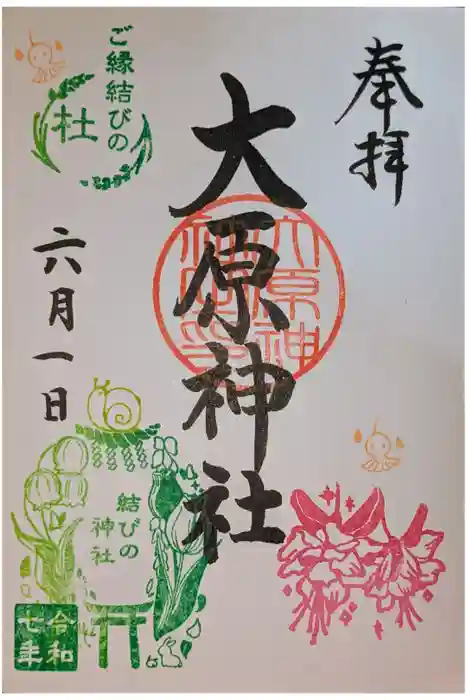 奉拝
大原神社
六月一日
ご縁結びの
杜
結びの
神社
令和
七年